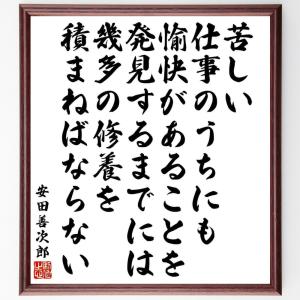 苦しい
仕事のうちにも
愉快があることを
発見するまでには
幾多の修養を
積まねばならない
安田善次郎